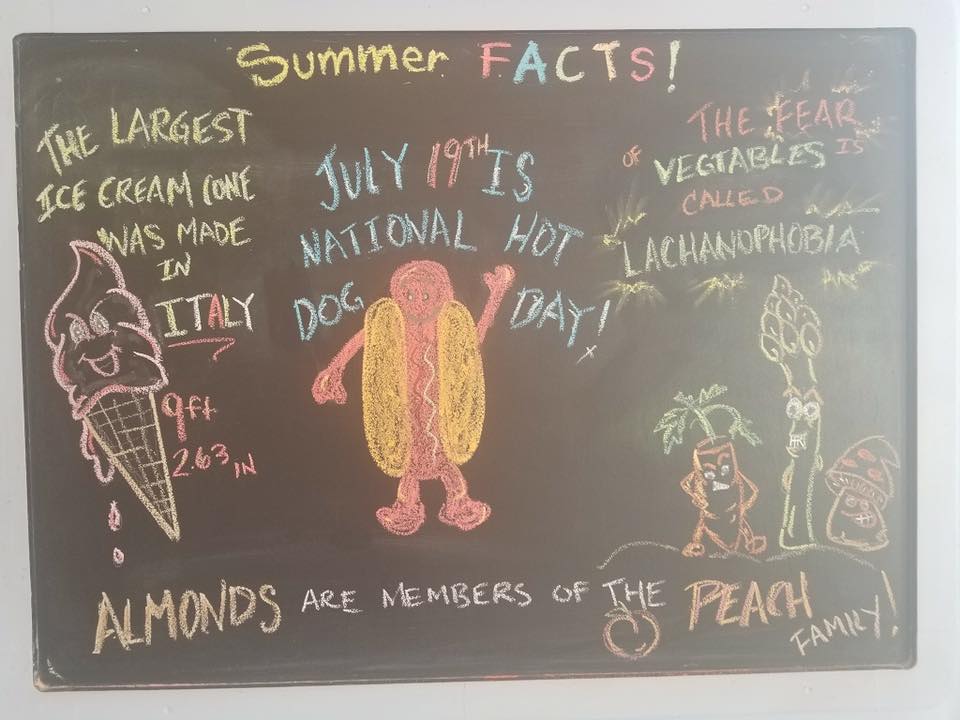 Summer FACTS!
THE LARGEST
ICE CREAM CONE
WAS MADE
IN
ITALY
9ft
2.63 IN
JULY 19TH IS
NATIONAL HOT
DOG DAY!
THE FEAR
OF VEGTABLES IS
CALLED
LACHANOPHOBIA
ALMONDS ARE MEMBERS OF THE PEACH
FAMILY!